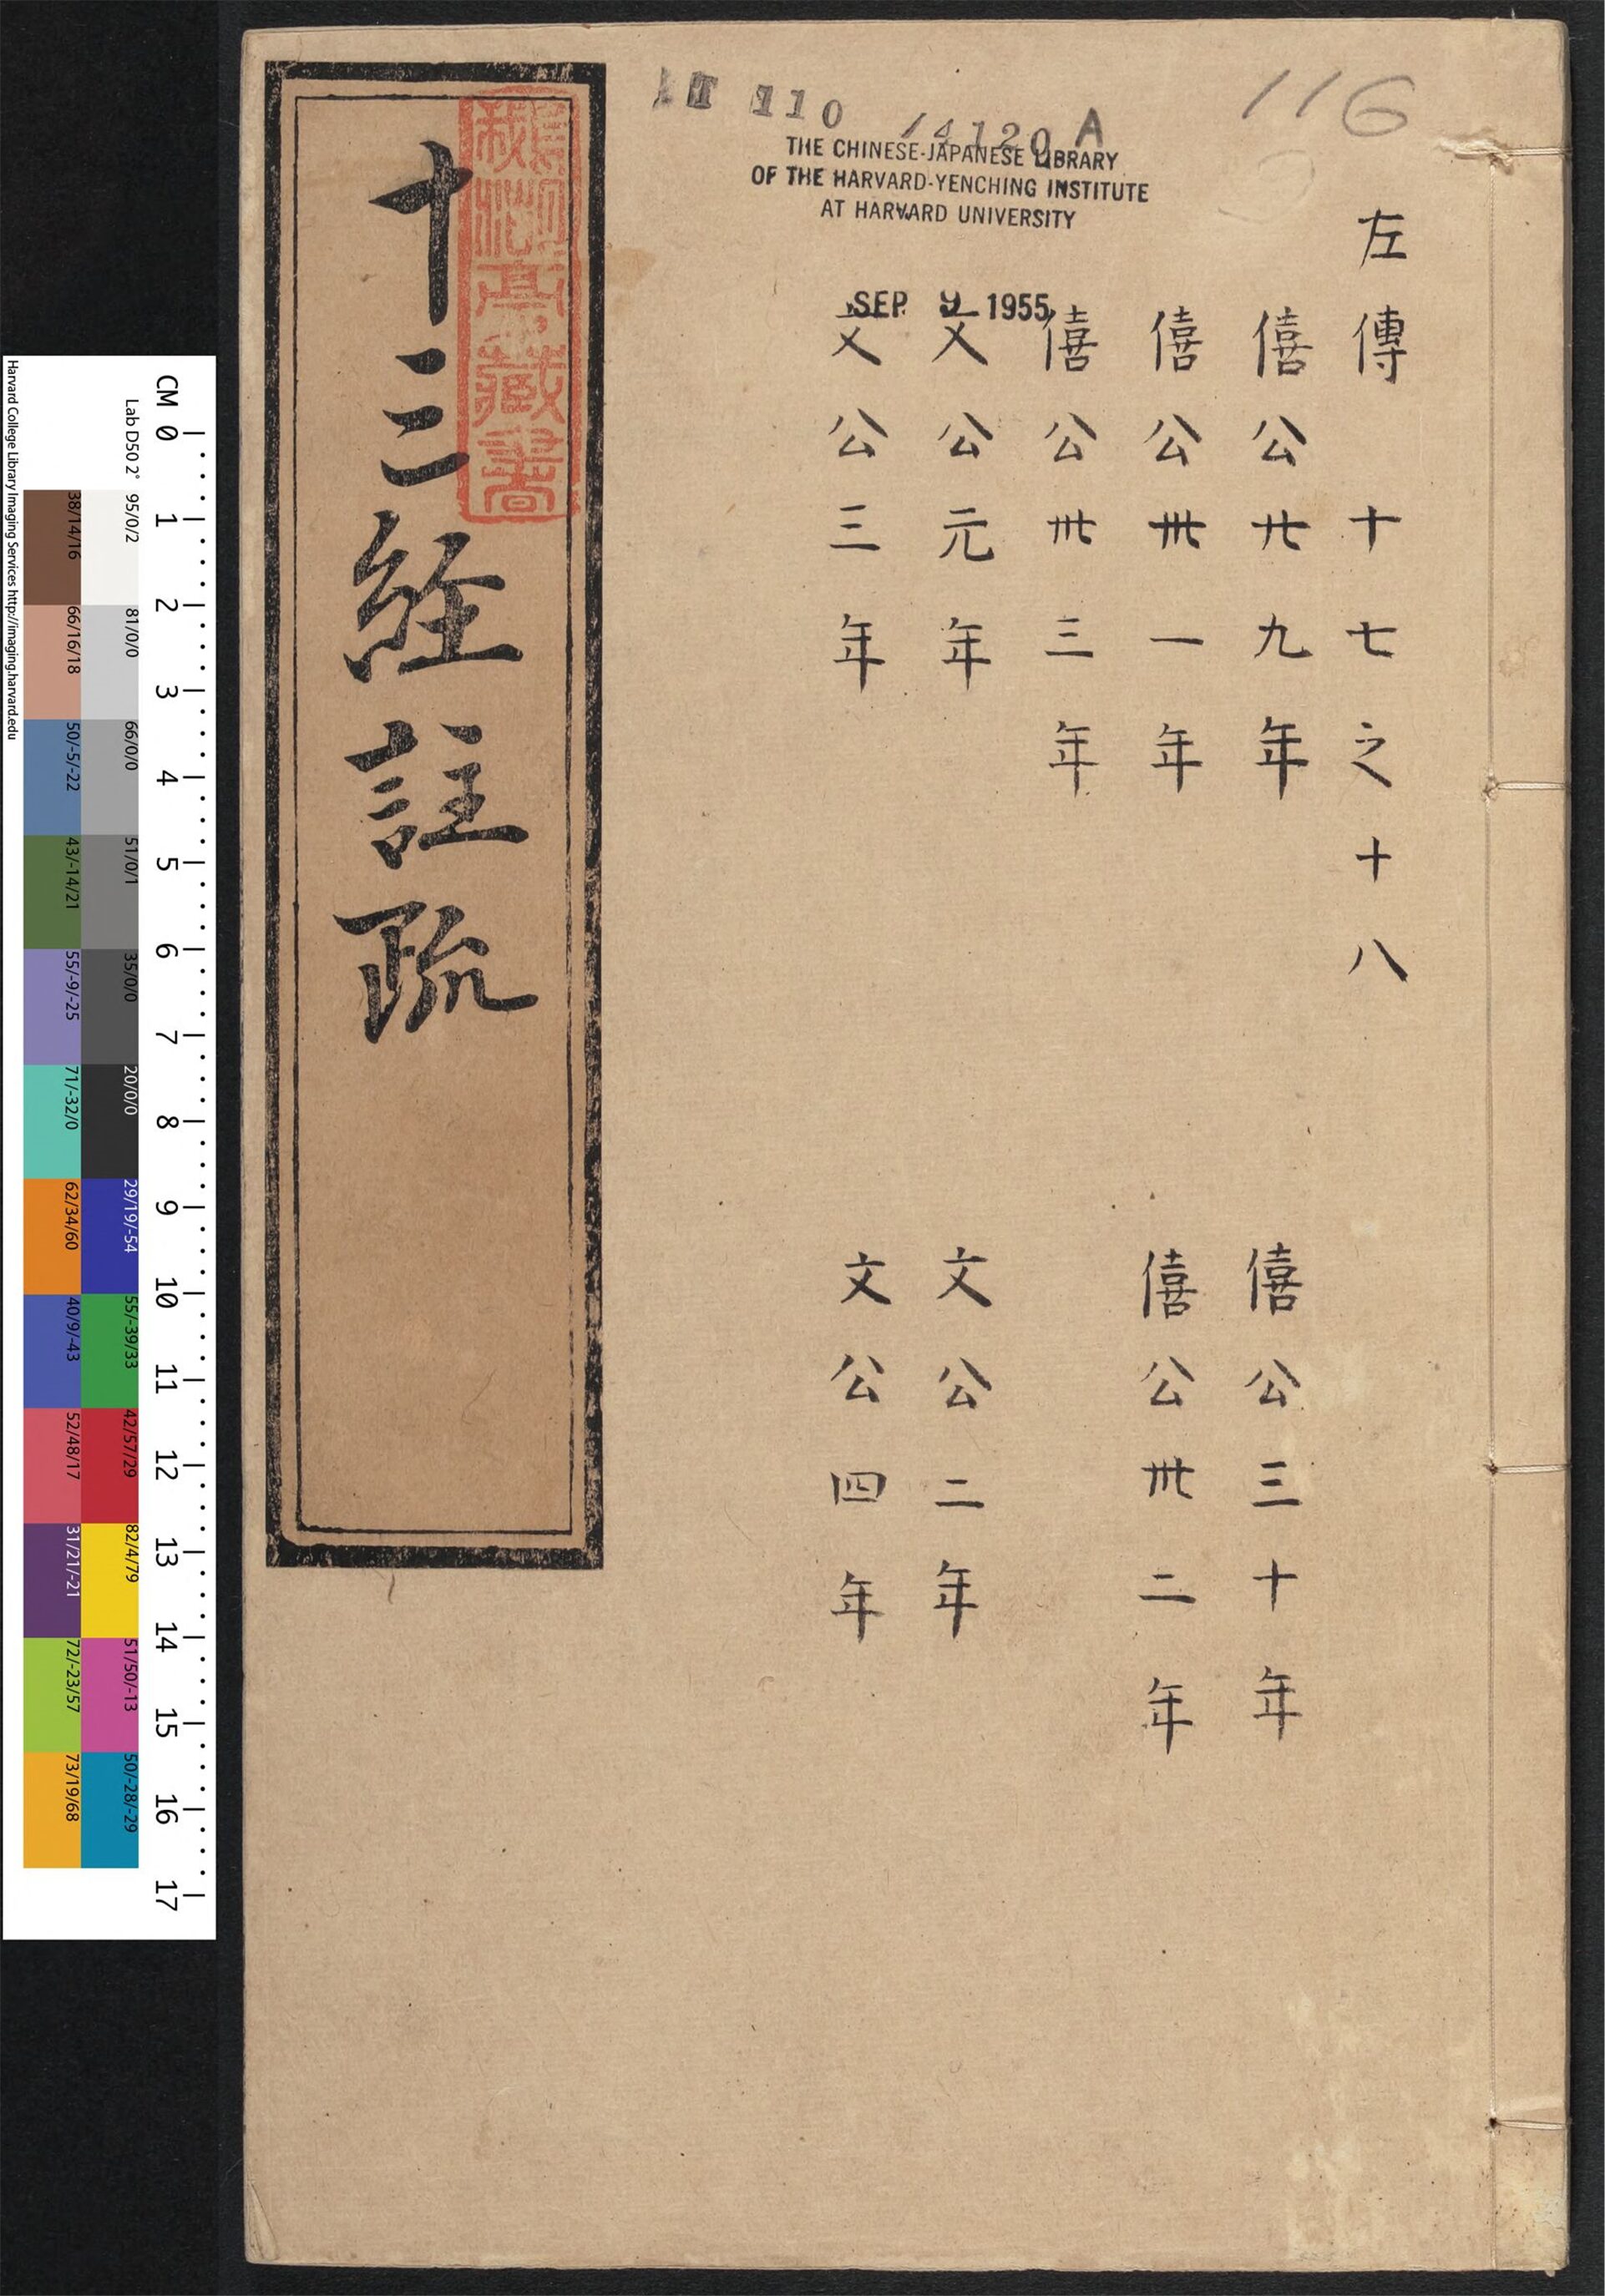 116
110
14120 A
THE CHINESE-JAPANESE LIBRARY
OF THE HARVARD-YENCHING INSTITUTE
AT HARVARD UNIVERSITY
SEP 9 1955
左傳 十七之十八
僖公廿九年 僖公三十年
僖公卅一年 僖公卅二年
僖公卅三年
文公元年 文公二年
文公三年 文公四年
十三經註疏
亭藏書
CM 0 1 2 3 4 5 6 7 8 9 10 11 12 13 14 15 16 17
Lab D50 2°
95/0/2 81/0/0 66/0/0 51/0/1 35/0/0 20/0/0 29/19/-54 55/-39/33 42/57/29 82/4/79 51/50/-13 50/-28/-29
38/14/16 66/16/18 50/-5/-22 43/-14/21 55/-9/-25 71/-32/0 62/34/60 40/9/-43 52/48/17 31/21/-21 72/-23/57 73/19/68
Harvard College Library Imaging Services http://imaging.harvard.edu